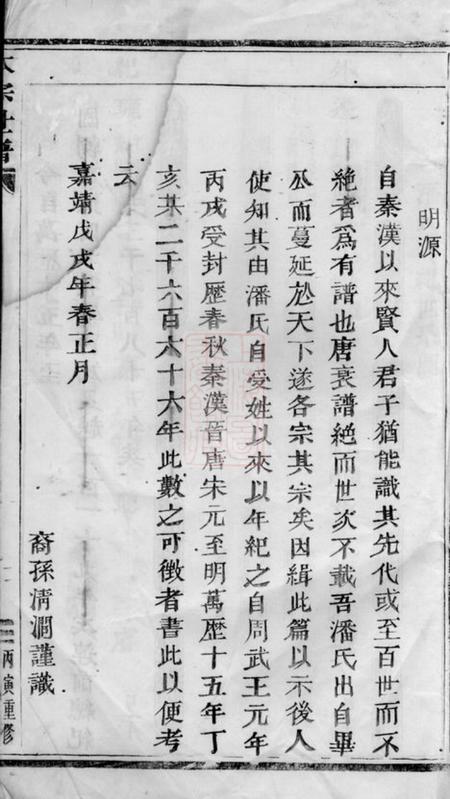 明源
自秦漢以來賢人君子猶能識其先代或至百世而不
絶者爲有譜也唐衰譜絶而世次不載吾潘氏出自畢
公而蔓延於天下遂各宗其宗矣因緝此篇以示後人
使知其由潘氏自受姓以來以年紀之自周武王元年
丙戌受封歷春秋秦漢晉唐宋元至明萬歷十五年丁
亥某二千六百六十六年此數之可徵者書此以便考
云
嘉靖戊戌年春正月
裔孫清澗謹識
丙寅重修